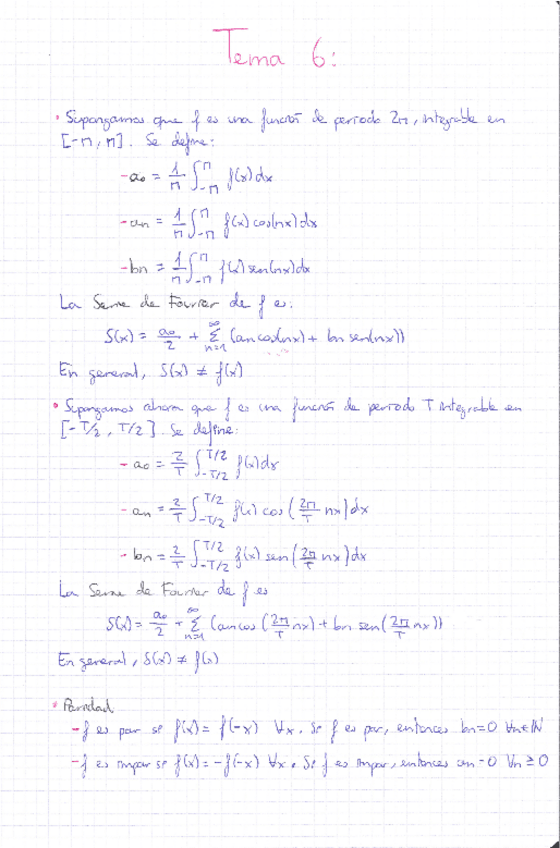 Tema 6:
• Supongamos que f es una función de periodo 2π, integrable en
[-π, π]. Se define:
- a₀ = 1/π ∫_{-π}^{π} f(x) dx
- aₙ = 1/π ∫_{-π}^{π} f(x) cos(nx) dx
- bₙ = 1/π ∫_{-π}^{π} f(x) sen(nx) dx
La Serie de Fourier de f es:
S(x) = a₀/2 + ∑_{n=1}^{∞} (aₙ cos(nx) + bₙ sen(nx))
En general, S(x) ≠ f(x)
• Supongamos ahora que f es una función de periodo T integrable en
[-T/2, T/2]. Se define:
- a₀ = 2/T ∫_{-T/2}^{T/2} f(x) dx
- aₙ = 2/T ∫_{-T/2}^{T/2} f(x) cos(2π/T nx) dx
- bₙ = 2/T ∫_{-T/2}^{T/2} f(x) sen(2π/T nx) dx
La Serie de Fourier de f es
S(x) = a₀/2 + ∑_{n=1}^{∞} (aₙ cos(2π/T nx) + bₙ sen(2π/T nx))
En general, S(x) ≠ f(x)
• Paridad
- f es par si f(x) = f(-x) ∀x. Si f es par, entonces bₙ=0 ∀n∈ℕ
- f es impar si f(x) = -f(-x) ∀x. Si f es impar, entonces aₙ=0 ∀n≥0